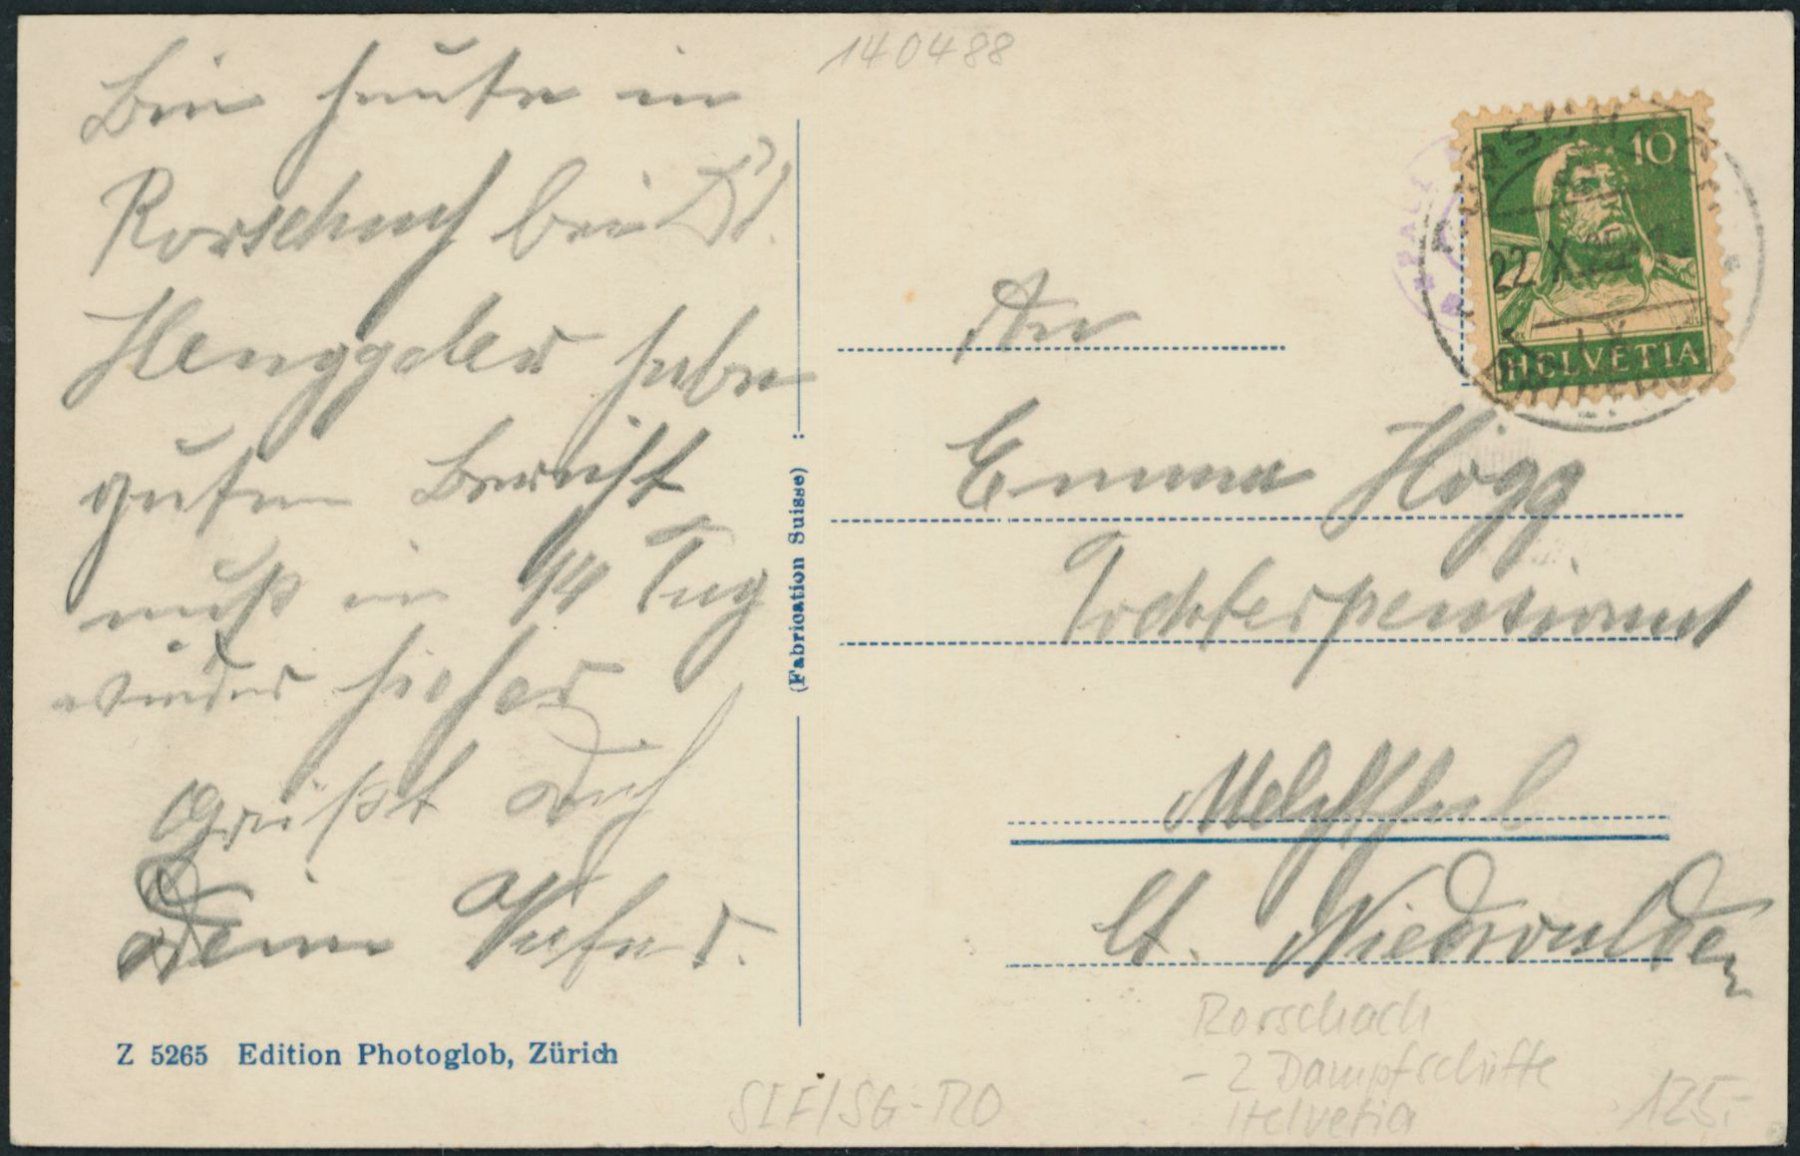 140488
Bin heute in
Rorschach bei Dr.
Henggeler habe
guten Bericht
muß in 14 Tag
wieder hieher
Grüßt Dich
Dein Vater.
Z 5265 Edition Photoglob, Zürich
(Fabrication Suisse)
10
22.X.
HELVETIA
An
Emma Högg
Tochterpensionat
Melchthal
Ct. Niedwalden
Rorschach
- 2 Dampfschiffe
Helvetia
125.-
SLF/SG-RO